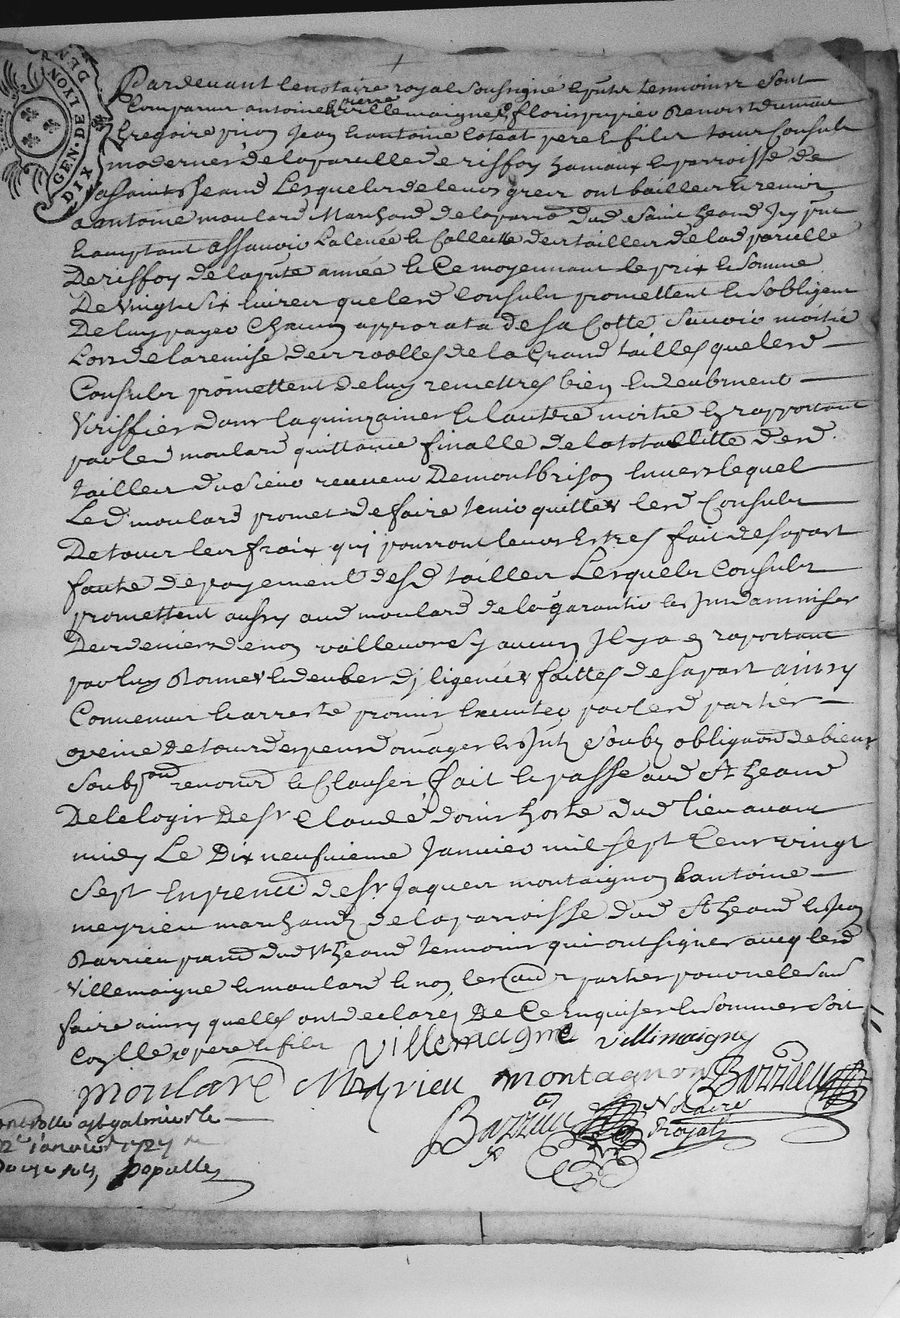 GEN·DE·LYON
DIX DEN
Pardevant le notaire royal soussigné et pnts temoins sont
Comparus antoine & pierre villemaigne & floris Benoist
gregoire Jean & antoine pere & fils tous Consuls
modernes de la parcelle de riffoy hameaux et parroisse de
Saint Jeand Lesquels de leurs grez ont bailler et remis
a antoine moulard Marchand de la parro dud Saint heand Icy pnt
Lacceptant assavoir La levée et Collecte des tailles de lad parcelle
De riffoy de la pnte année et Ce moyennant le prix et Somme
De Vingt Six livres que lesd Consuls promettent et Sobligent
De luy payer Chacun approrata de sa Cotte Savoir moitié
Lors de la remise des roolles de la Grand tailles que lesd
Consuls promettent de luy remettres bien et deubment
Viriffier dans la quinzaines et lautre moitié En rapportant
par led moulard quittance finalle de la totallitte desd
tailles du Sieur receveur De montbrison Envers lequel
Led moulard promet de faire tenir quittes lesd Consuls
De tous les fraix quj pourront leurs Estres fait de sa part
faute de payement desd tailles Lesquels Consuls
promettent aussy aud moulard de la garantir et Indamniser
Des deniers de non valleures sy aucun Il y a En raportant
par luy Bonnes et deubes diligences faittes de sa part ainsy
Convenu et arresté promis Executer par lesd parties
a peine de tous despens domages et Intz Soubz obligaond de biens
Soubzmon renond et Clauses fait et passé aud St heand
De le logis De sr Claude dorin hoste dud lieu avant
midy Le Dix neufvieme Janvier mil Sept Cens vingt
Sept En presence de sr Jaques montaignon & antoine
meyrieu marchandz de la parroisse dud St heand et Jean
Barrieu dud St heand temoins qui ont signer avecq lesd
Villemaigne et moulard et non les aud parties pour ne le Savoir
faire ainsy quelles ont declarez De Ce Enquises et Sommes Soit
pere et fils
Villemagne villimaigne
moulard Meyrieu montagnon Barrieu
Barrieu Notaire
Royal
Controllé a St galmier le
22e janvier 1727
douze sols populle